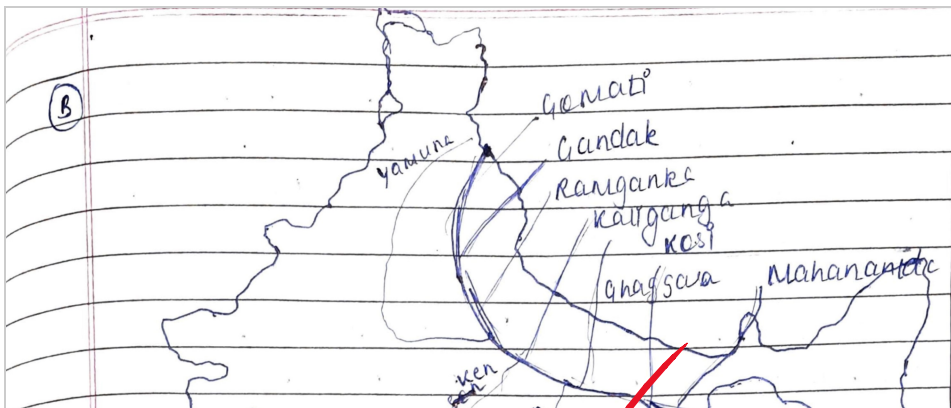 B
Gomati
Gandak
Yamuna
Ramganka
Kaliganga
Kosi
Ghaggara
Mahananda
Ken